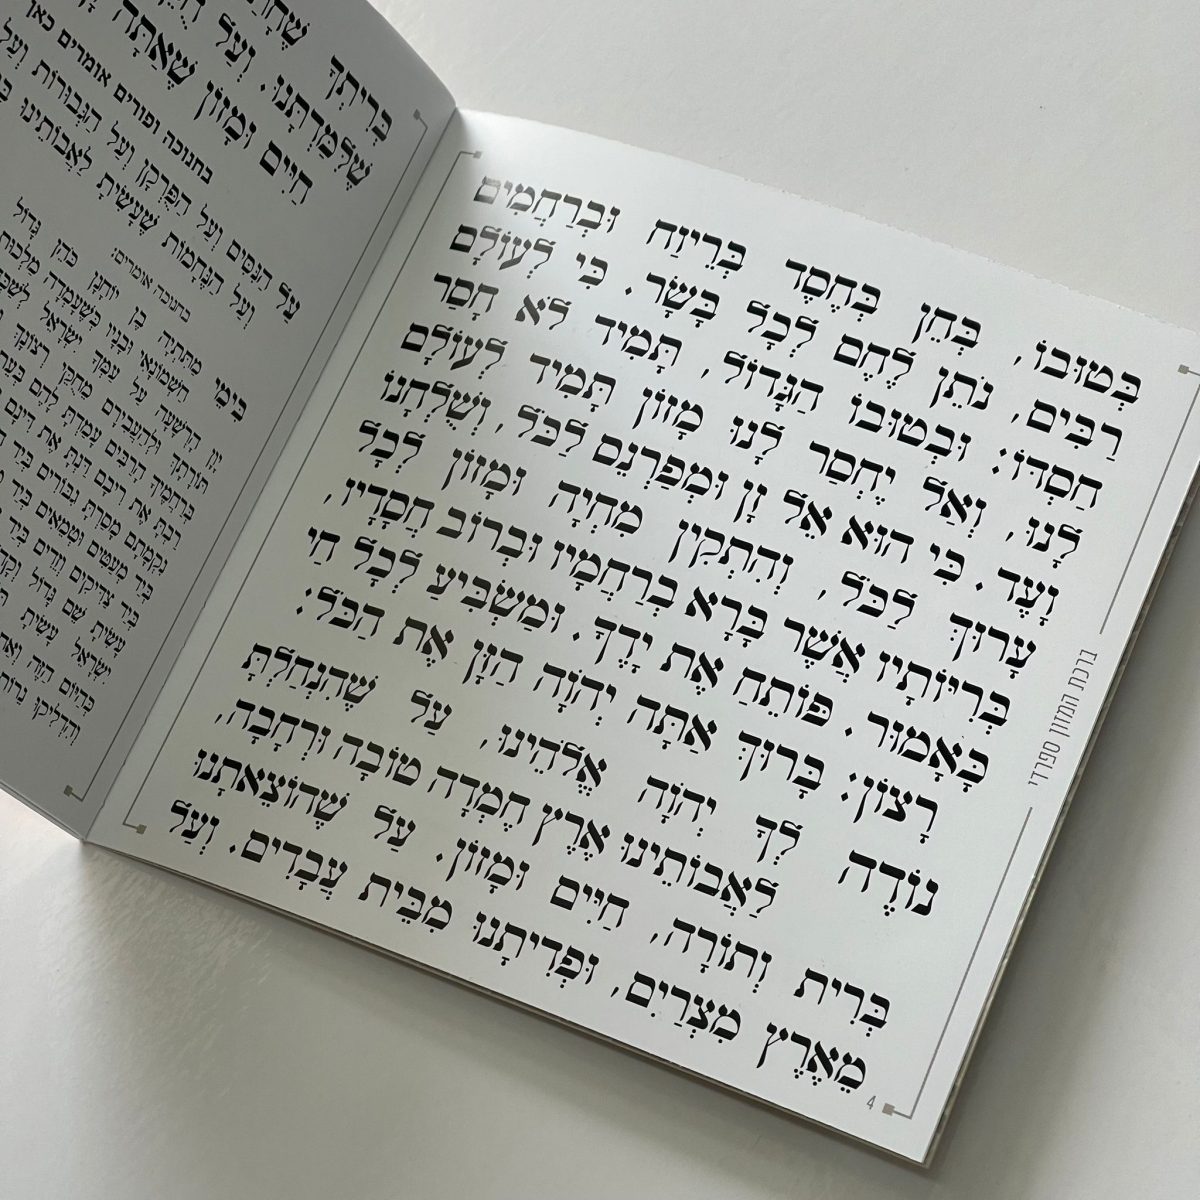 בְּטוּבוֹ, בְּחֵן בְּחֶסֶד בְּרִיוַח וּבְרַחֲמִים
רַבִּים, נֹתֵן לֶחֶם לְכָל בָּשָׂר. כִּי לְעוֹלָם
חַסְדּוֹ: וּבְטוּבוֹ הַגָּדוֹל, תָּמִיד לֹא חָסַר
לָנוּ, וְאַל יֶחְסַר לָנוּ מָזוֹן תָּמִיד לְעוֹלָם
וָעֶד. כִּי הוּא אֵל זָן וּמְפַרְנֵס לַכֹּל, וְשֻׁלְחָנוֹ
עָרוּךְ לַכֹּל, וְהִתְקִין מִחְיָה וּמָזוֹן לְכָל
בְּרִיּוֹתָיו אֲשֶׁר בָּרָא בְרַחֲמָיו וּבְרוֹב חֲסָדָיו,
כָּאָמוּר. פּוֹתֵחַ אֶת יָדֶךָ. וּמַשְׂבִּיעַ לְכָל חַי
רָצוֹן: בָּרוּךְ אַתָּה יְהֹוָה הַזָּן אֶת הַכֹּל:
נוֹדֶה לְּךָ יְהֹוָה אֱלֹהֵינוּ, עַל שֶׁהִנְחַלְתָּ
לַאֲבוֹתֵינוּ אֶרֶץ חֶמְדָה טוֹבָה וּרְחָבָה,
בְּרִית וְתוֹרָה, חַיִּים וּמָזוֹן. עַל שֶׁהוֹצֵאתָנוּ
מֵאֶרֶץ מִצְרַיִם, וּפְדִיתָנוּ מִבֵּית עֲבָדִים. וְעַל
ברכת המזון ספרדי
4
בְּרִיתְךָ
שֶׁלִּמַּדְתָּנוּ. וְעַל
חַיִּים וּמָזוֹן שֶׁאַתָּה
בחנוכה ופורים אומרים כאן
עַל הַנִּסִּים וְעַל הַפֻּרְקָן וְעַל הַגְּבוּרוֹת וְעַל
וְעַל הַנֶּחָמוֹת שֶׁעָשִׂיתָ לַאֲבוֹתֵינוּ
בחנוכה אומרים:
בִּימֵי מַתִּתְיָה בֶן יוֹחָנָן כֹּהֵן גָּדוֹל
חַשְׁמוֹנָאִי וּבָנָיו כְּשֶׁעָמְדָה מַלְכוּת
יָוָן הָרְשָׁעָה עַל עַמְּךָ יִשְׂרָאֵל
תּוֹרָתֶךָ וּלְהַעֲבִירָם מֵחֻקֵּי רְצוֹנֶךָ
בְּרַחֲמֶיךָ הָרַבִּים עָמַדְתָּ לָהֶם בְּעֵת
רַבְתָּ אֶת רִיבָם דַּנְתָּ אֶת דִּינָם
נָקַמְתָּ מָסַרְתָּ גִבּוֹרִים בְּיַד
בְּיַד מְעַטִּים וּטְמֵאִים בְּיַד
בְּיַד צַדִּיקִים וְזֵדִים בְּיַד
עָשִׂיתָ שֵׁם גָּדוֹל
יִשְׂרָאֵל עָשִׂיתָ
כְּהַיּוֹם הַזֶּה
וְהִדְלִיקוּ נֵרוֹת